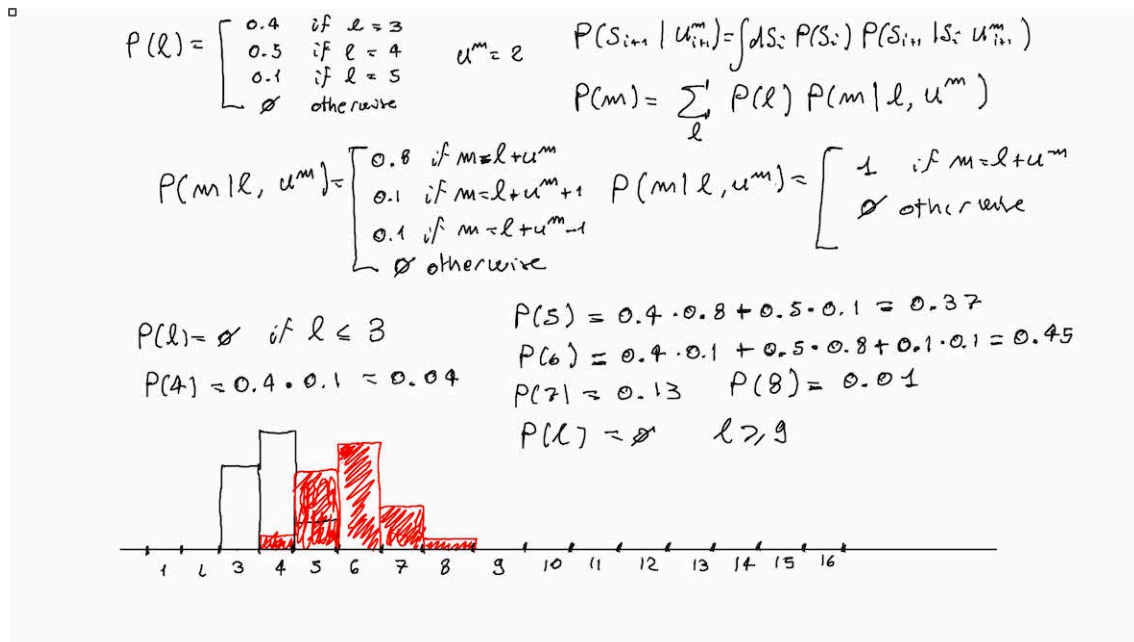 P(l) = [ 0.4 if l = 3
0.5 if l = 4
0.1 if l = 5
ø otherwise
u^m = 2
P(S_{i+1} | u^m_{i+1}) = ∫dS_i P(S_i) P(S_{i+1} | S_i u^m_{i+1})
P(m) = Σ_l P(l) P(m | l, u^m)
P(m | l, u^m) = [ 0.8 if m = l + u^m
0.1 if m = l + u^m + 1
0.1 if m = l + u^m - 1
ø otherwise
P(m | l, u^m) = [ 1 if m = l + u^m
ø otherwise
P(l) = ø if l ≤ 3
P(4) = 0.4 · 0.1 = 0.04
P(5) = 0.4 · 0.8 + 0.5 · 0.1 = 0.37
P(6) = 0.4 · 0.1 + 0.5 · 0.8 + 0.1 · 0.1 = 0.45
P(7) = 0.13 P(8) = 0.01
P(l) = ø l ≥ 9
1 2 3 4 5 6 7 8 9 10 11 12 13 14 15 16